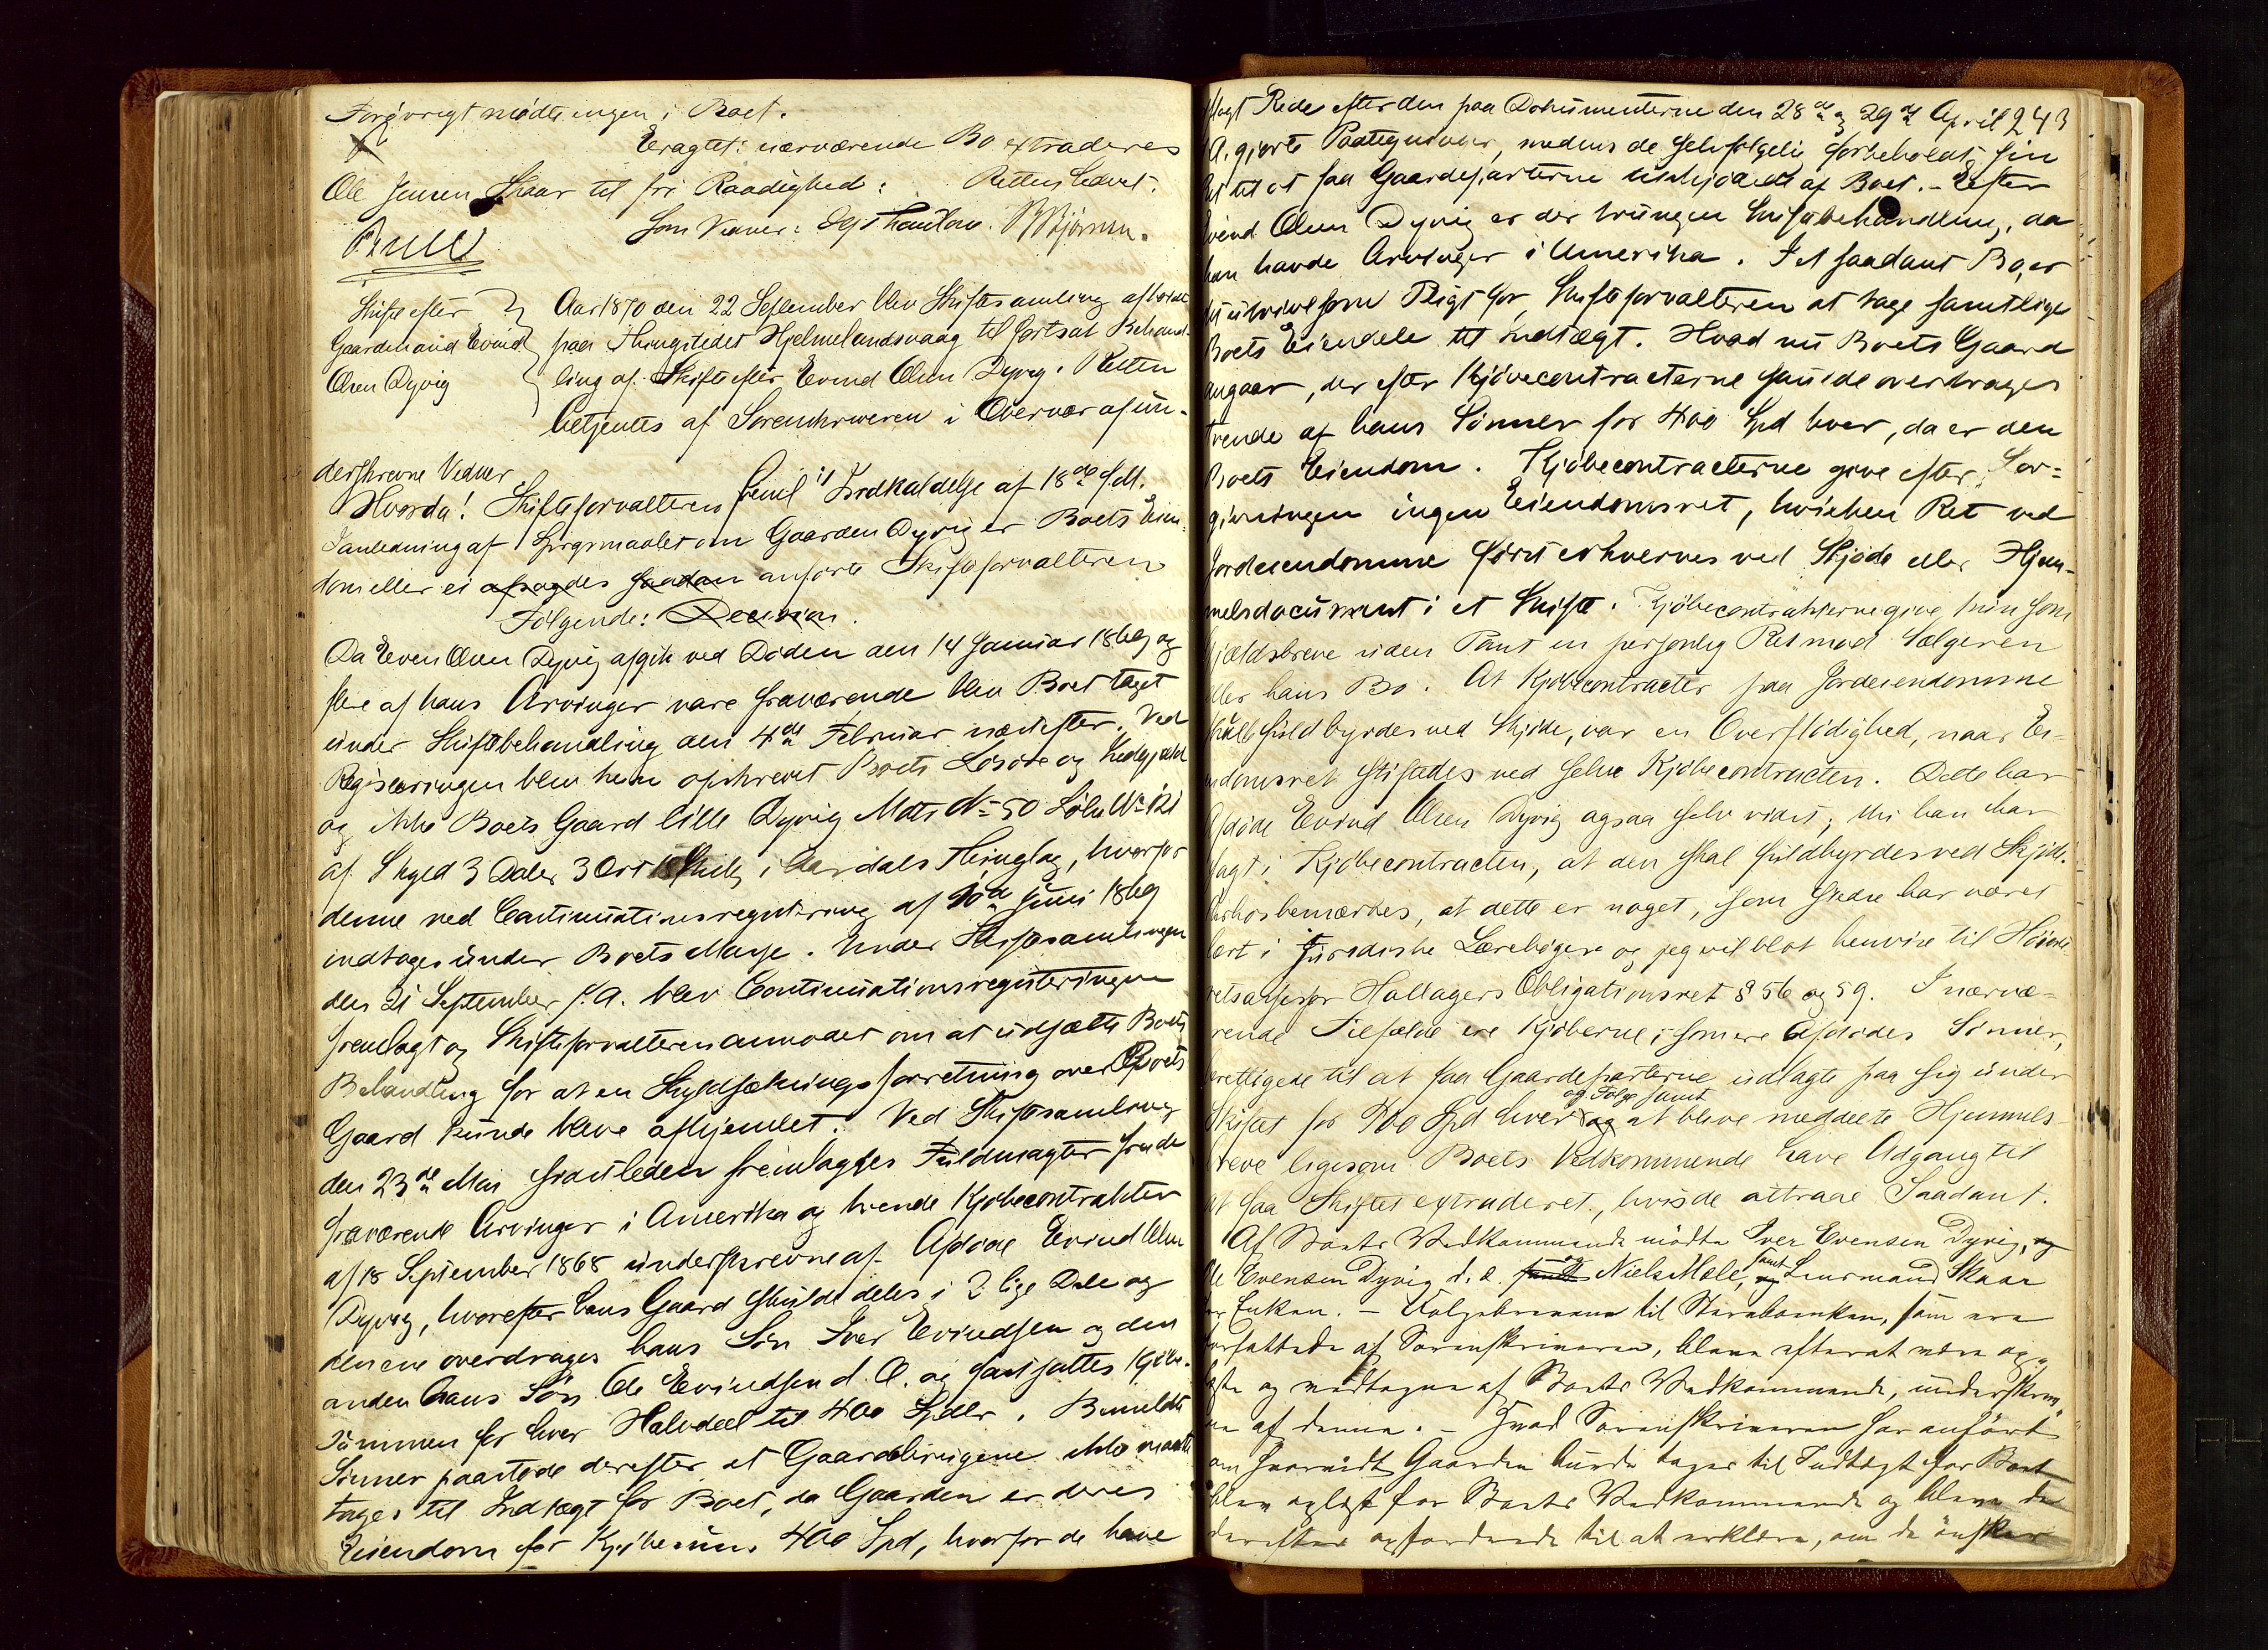 Forøvrigt mødte ingen i Boet.
Eragtet: nærværende Bo extraderes
Ole Jensen Skaar til fri Raadighed: Retten hævet.
Som Vidner:
Skifte efter
Gaardmand Evind
Olsen Dyvig
Aar 1870 den 22 September blev Skiftesamling afholdt
paa Thingstedet Hjelmelandsvaag til fortsat Behand-
ling af Skiftet efter Evind Olsen Dyvig. Retten
betjentes af Sorenskriveren i Overvær af un-
derskrevne Vidner
Hvorda! Skifteforvalteren freml. Indkaldelse af 18de f.M.
I anledning af Spørgsmaalet om Gaarden Dyvig er Boets Eien-
dom eller ei afsagdes saadan anførte Skifteforvalteren
Følgende: Decision.
Da Even Olsen Dyvig afgik ved Døden den 14 Januar 1869 og
flere af hans Arvinger vare fraværende blev Boet taget
under Skiftebehandling den 4de Februar næstefter. Ved
Registreringen blev kun opskrevet Boets Løsøre og Ledgjæld
og ikke Boets Gaard lille Dyvig Matr No 50 Løbe No 121
af Skyld 3 Daler 3 Ort Skill i Aardals Thinglag, hvorfor
denne ved Continuationsregistrering af 10de Juni 1869
indtoges under Boets Masse. Under Skiftesamlingen
den 21 September s. A. blev Continuationsregistreringen
fremlagt og Skifteforvalteren anmodet om at udsætte Boets
Behandling for at en Skyldsætningsforretning over Boets
Gaard kunde blive afhjemlet. Ved Skiftesamling
den 23de Mai sidstleden fremlagdes Fuldmagter fra de
fraværende Arvinger i Amerika og tvende Kjøbecontrakter
af 18 September 1868 underskrevne af Afdøde Evind Olsen
Dyvig, hvorefter hans Gaard skulde deles i 2 lige Dele og
den ene overdrages hans Søn Iver Evindsen og den
anden hans Søn Ole Evindsen d. Æ. og fastsattes Kjøbe-
summen for hver Halvdeel til 400 Spdlr. Bemeldte
Sønner paastode derefter at Gaardebrugene ikke maatte
tages til Indtægt for Boet, da Gaarden er deres
Eiendom for Kjøbesum 400 Spd, hvorfor de have
Rede efter den paa Dokumenterne den 28de og 29de April 243
A. gjorte Paategninger, medens de selvfølgelig forbeholdt sin
Ret til at faa Gaardeparterne udskjødede af Boet. - Efter
Evind Olsen Dyvig er der tvungen Skiftebehandling, da
han havde Arvinger i Amerika. I et saadant Bo, er
det utvivlsom Pligt for Skifteforvalteren at tage samtlige
Boets Eiendele til Indtægt. Hvad nu Boets Gaard
angaar, der efter Kjøbecontracterne skulde overdrages
tvende af hans Sønner for 400 Spd hver, da er den
Boets Eiendom. Kjøbecontracterne give efter Lov-
givningen ingen Eiendomsret, hvilken Ret ved
Jordeiendomme først erhverves ved Skjøde eller Hjem-
melsdocument i et Skifte. Kjøbecontrakterne give kun som
Gjældsbreve uden Pant en personlig Ret mod Sælgeren
eller hans Bo. At Kjøbecontracter paa Jordeiendomme
skulle fuldbyrdes ved Skjøde, var en Overflødighed, naar Ei-
endomsret stiftedes ved selve Kjøbecontracten. Dette har
Afdøde Evind Olsen Dyvig ogsaa selv vidst, thi han har
sagt i Kjøbecontracten, at den skal fuldbyrdes ved Skjøde.
Herhos bemærkes, at dette er noget, som stedse har været
lært i juridiske Lærebøger og jeg vil blot henvise til Høieste-
retsassessor Hallagers Obligationsret § 56 og 59. I nærvæ-
rende Tilfælde ere Kjøberne, som ere Afdødes Sønner,
berettigede til at faa Gaardeparterne udlagte paa sig under
og Følge samt
Skiftet for 400 Spd hver og at blive meddelte Hjemmels-
breve ligesom Boets Vedkommende have Adgang til
at faa Skiftet extraderet, hvis de attraae Saadant.
Af Boets Vedkommende mødte Iver Evensen Dyvig, og
Ole Evensen Dyvig d. æ. samt og Niels Mæle, og samt Lensmand Skaar
for Enken. - Følgebrevene til Stervboenken, som ere
forfattede af Sorenskriveren, bleve efterat være op-
læste og vedtagne af Boets Vedkommende, underskrev-
ne af denne. - Hvad Sorenskriveren har anført
om hvorvidt Gaarden burde tages til Indtægt for Boet
blev oplæst for Boets Vedkommende og bleve de
derefter opfordrede til at erklære, om de ønsker